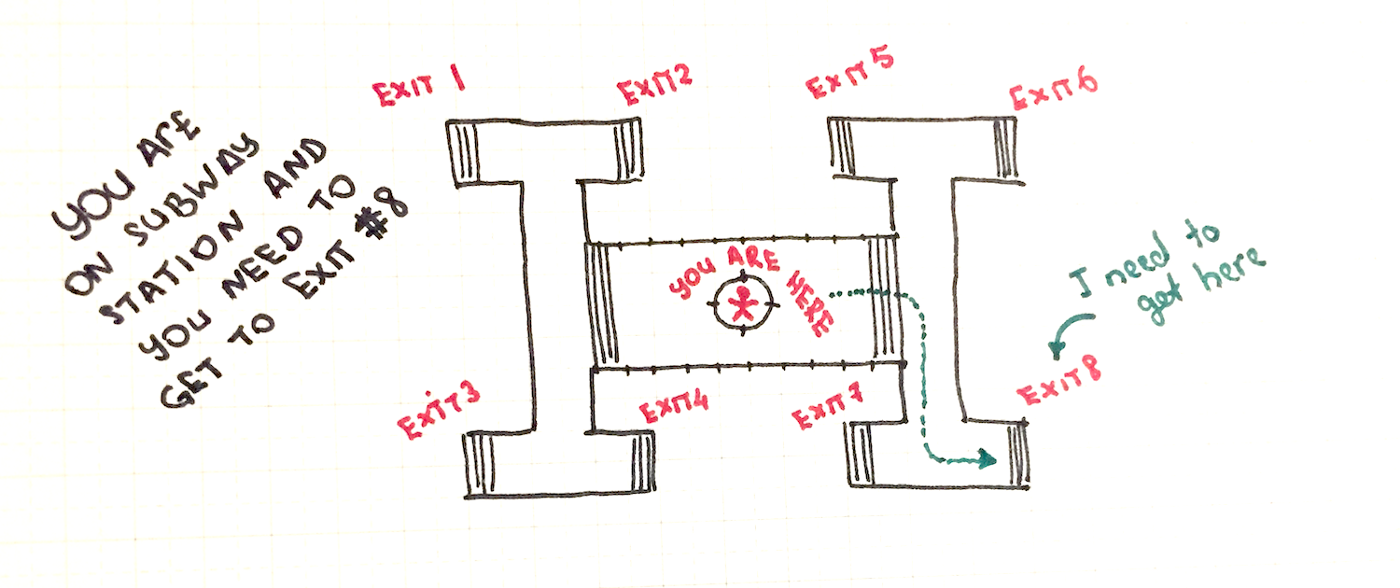 YOU ARE
ON SUBWAY
STATION AND
YOU NEED TO
GET TO EXIT #8
EXIT 1
EXIT2
EXIT 5
EXIT6
YOU ARE HERE
I need to
get here
EXIT3
EXIT4
EXIT 7
EXIT8